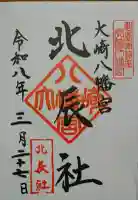 大崎八幡宮
北辰社
令和八年
三月二十七日
北辰社